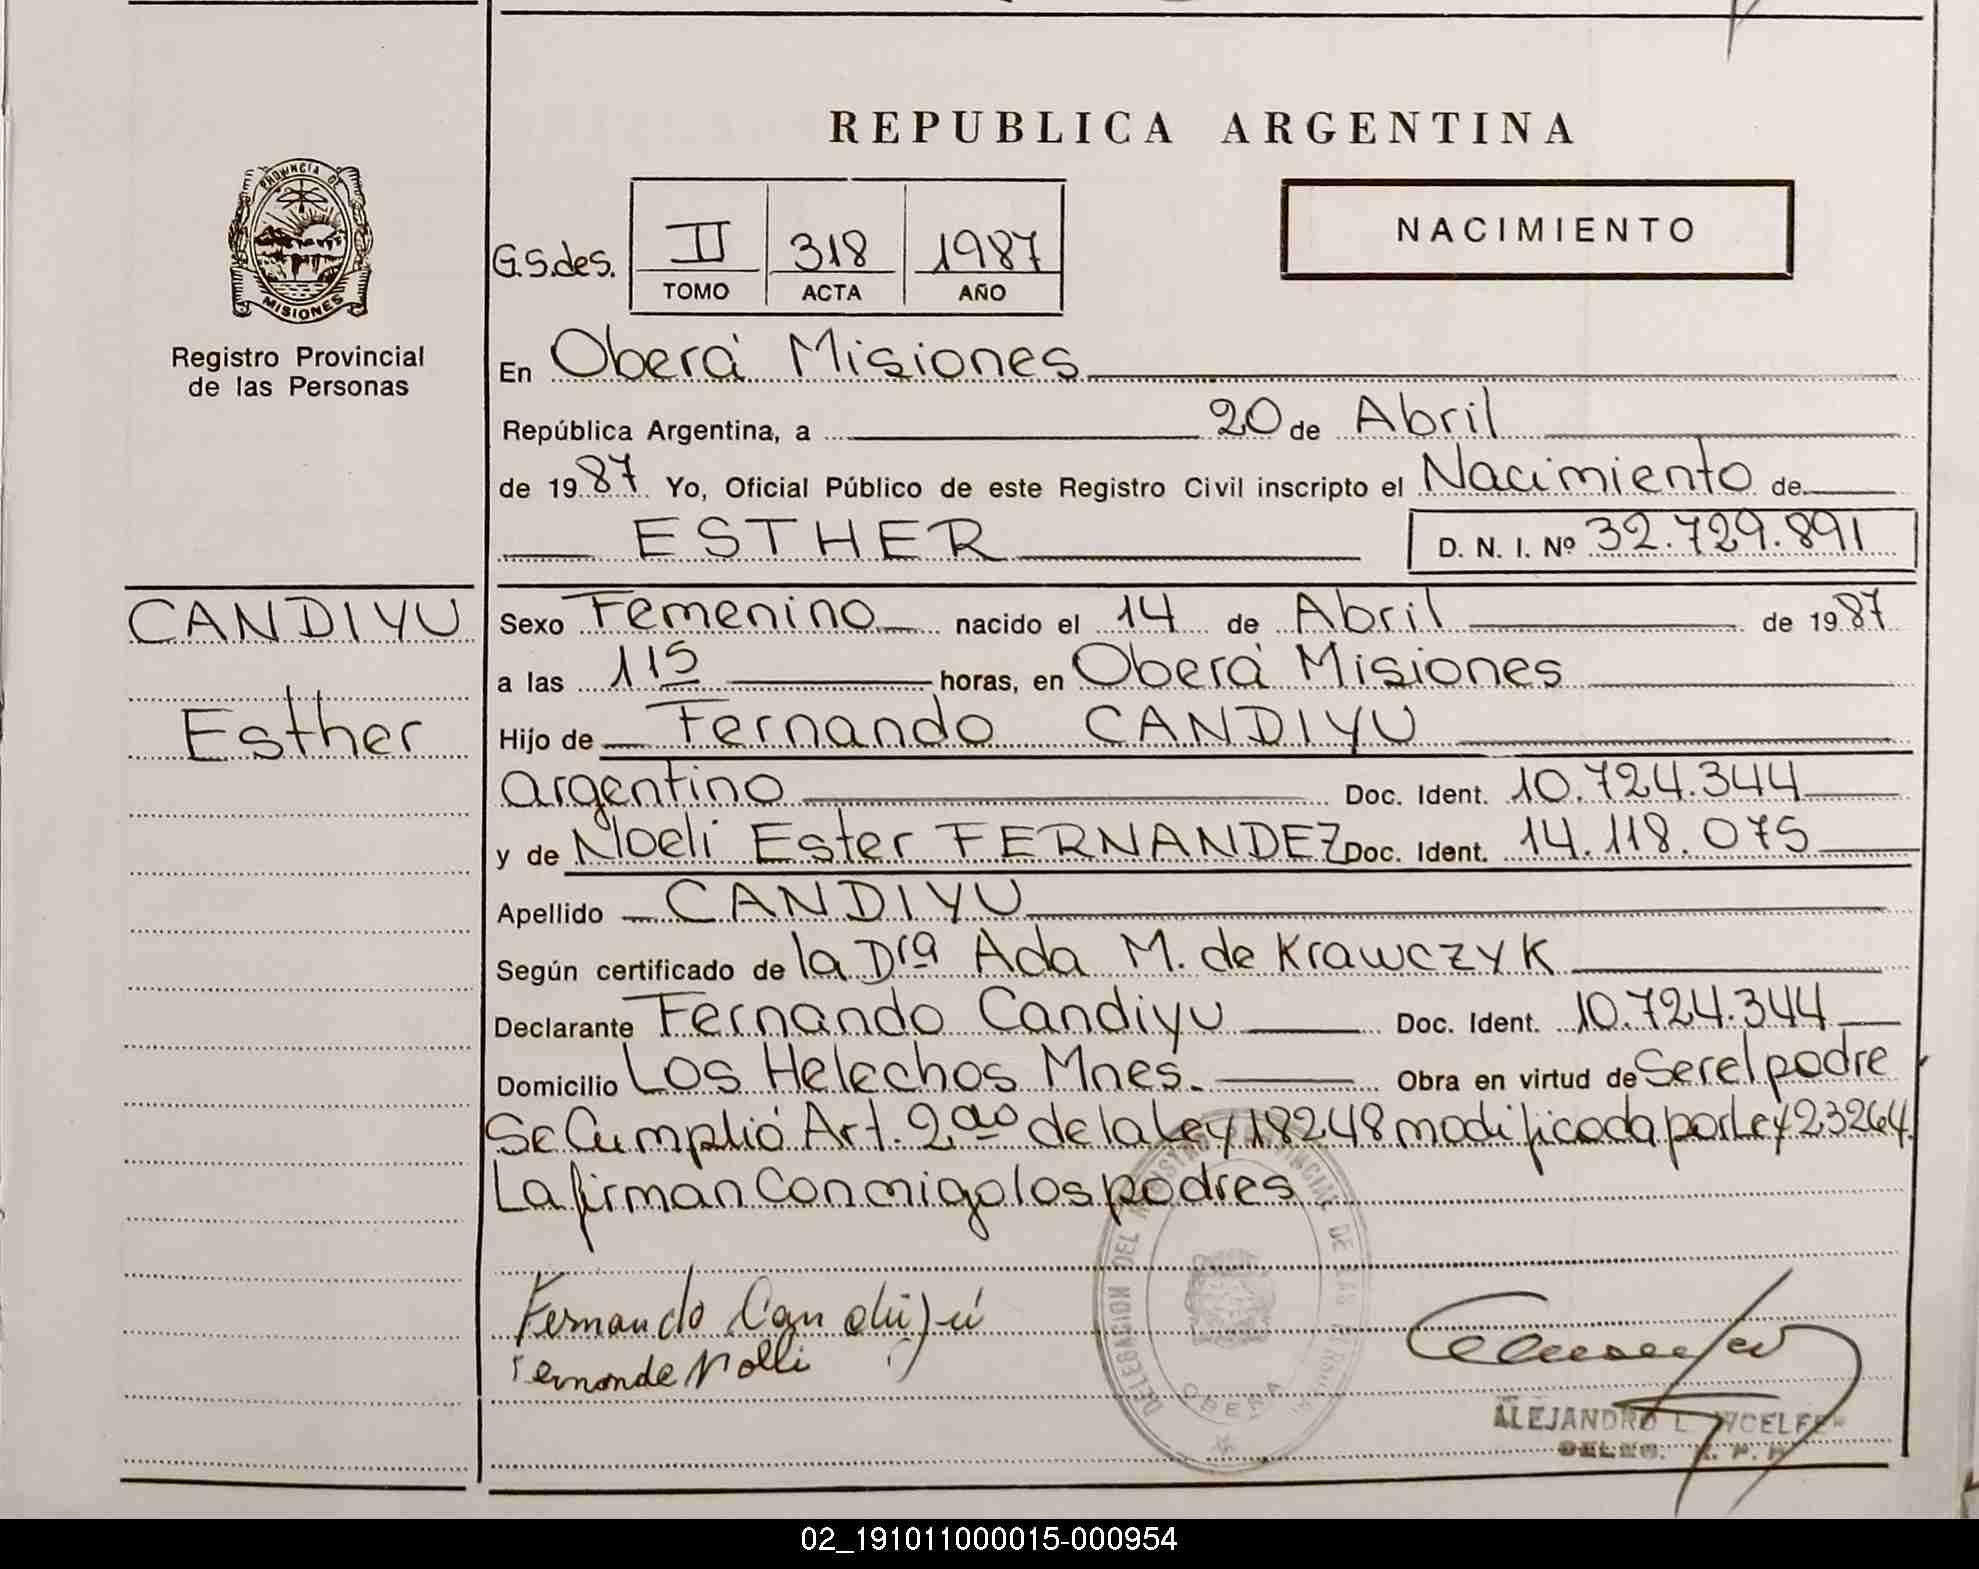 REPUBLICA ARGENTINA
PROVINCIA DE
MISIONES
Registro Provincial
de las Personas
NACIMIENTO
G.S.des. II 318 1987
TOMO ACTA AÑO
En Oberá Misiones
República Argentina, a 20 de Abril
de 1987 Yo, Oficial Público de este Registro Civil inscripto el Nacimiento de
ESTHER D. N. I. Nº 32.729.891
CANDIYU
Esther
Sexo Femenino nacido el 14 de Abril de 1987
a las 115 horas, en Oberá Misiones
Hijo de Fernando CANDIYU
argentino Doc. Ident. 10.724.344
y de Noeli Ester FERNANDEZ Doc. Ident. 14.118.075
Apellido CANDIYU
Según certificado de la Dra Ada M. de Krawczyk
Declarante Fernando Candiyu Doc. Ident. 10.724.344
Domicilio Los Helechos Mnes. Obra en virtud de Ser el padre
Se Cumplió Art. 2do de la Ley 18248 modificada por Ley 23264.
La firman Conmigo los padres
DELEGACION DEL REGISTRO PROVINCIAL DE LAS PERSONAS
OBERA
Fernando Candiyú
Fernande Nolli
ALEJANDRO L.
02_191011000015-000954